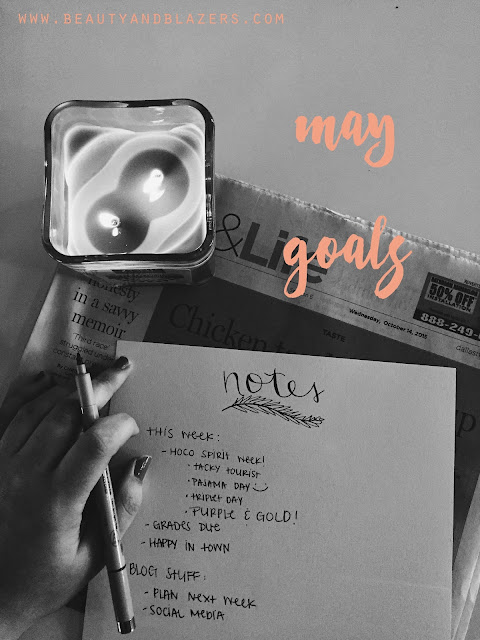 WWW.BEAUTYANDBLAZERS.COM
may
goals
& Life
TASTE
Wednesday, October 14, 2015
50% OFF
888-249-
Chicken
honesty
in a savvy
memoir
'Third race'
struggled under
notes
THIS WEEK:
- HOCO SPIRIT WEEK!
· TACKY TOURIST
· PAJAMA DAY :)
· TRIPLET DAY
· PURPLE & GOLD!
- GRADES DUE
- HAPPY IN TOWN
BLOG STUFF:
- PLAN NEXT WEEK
- SOCIAL MEDIA